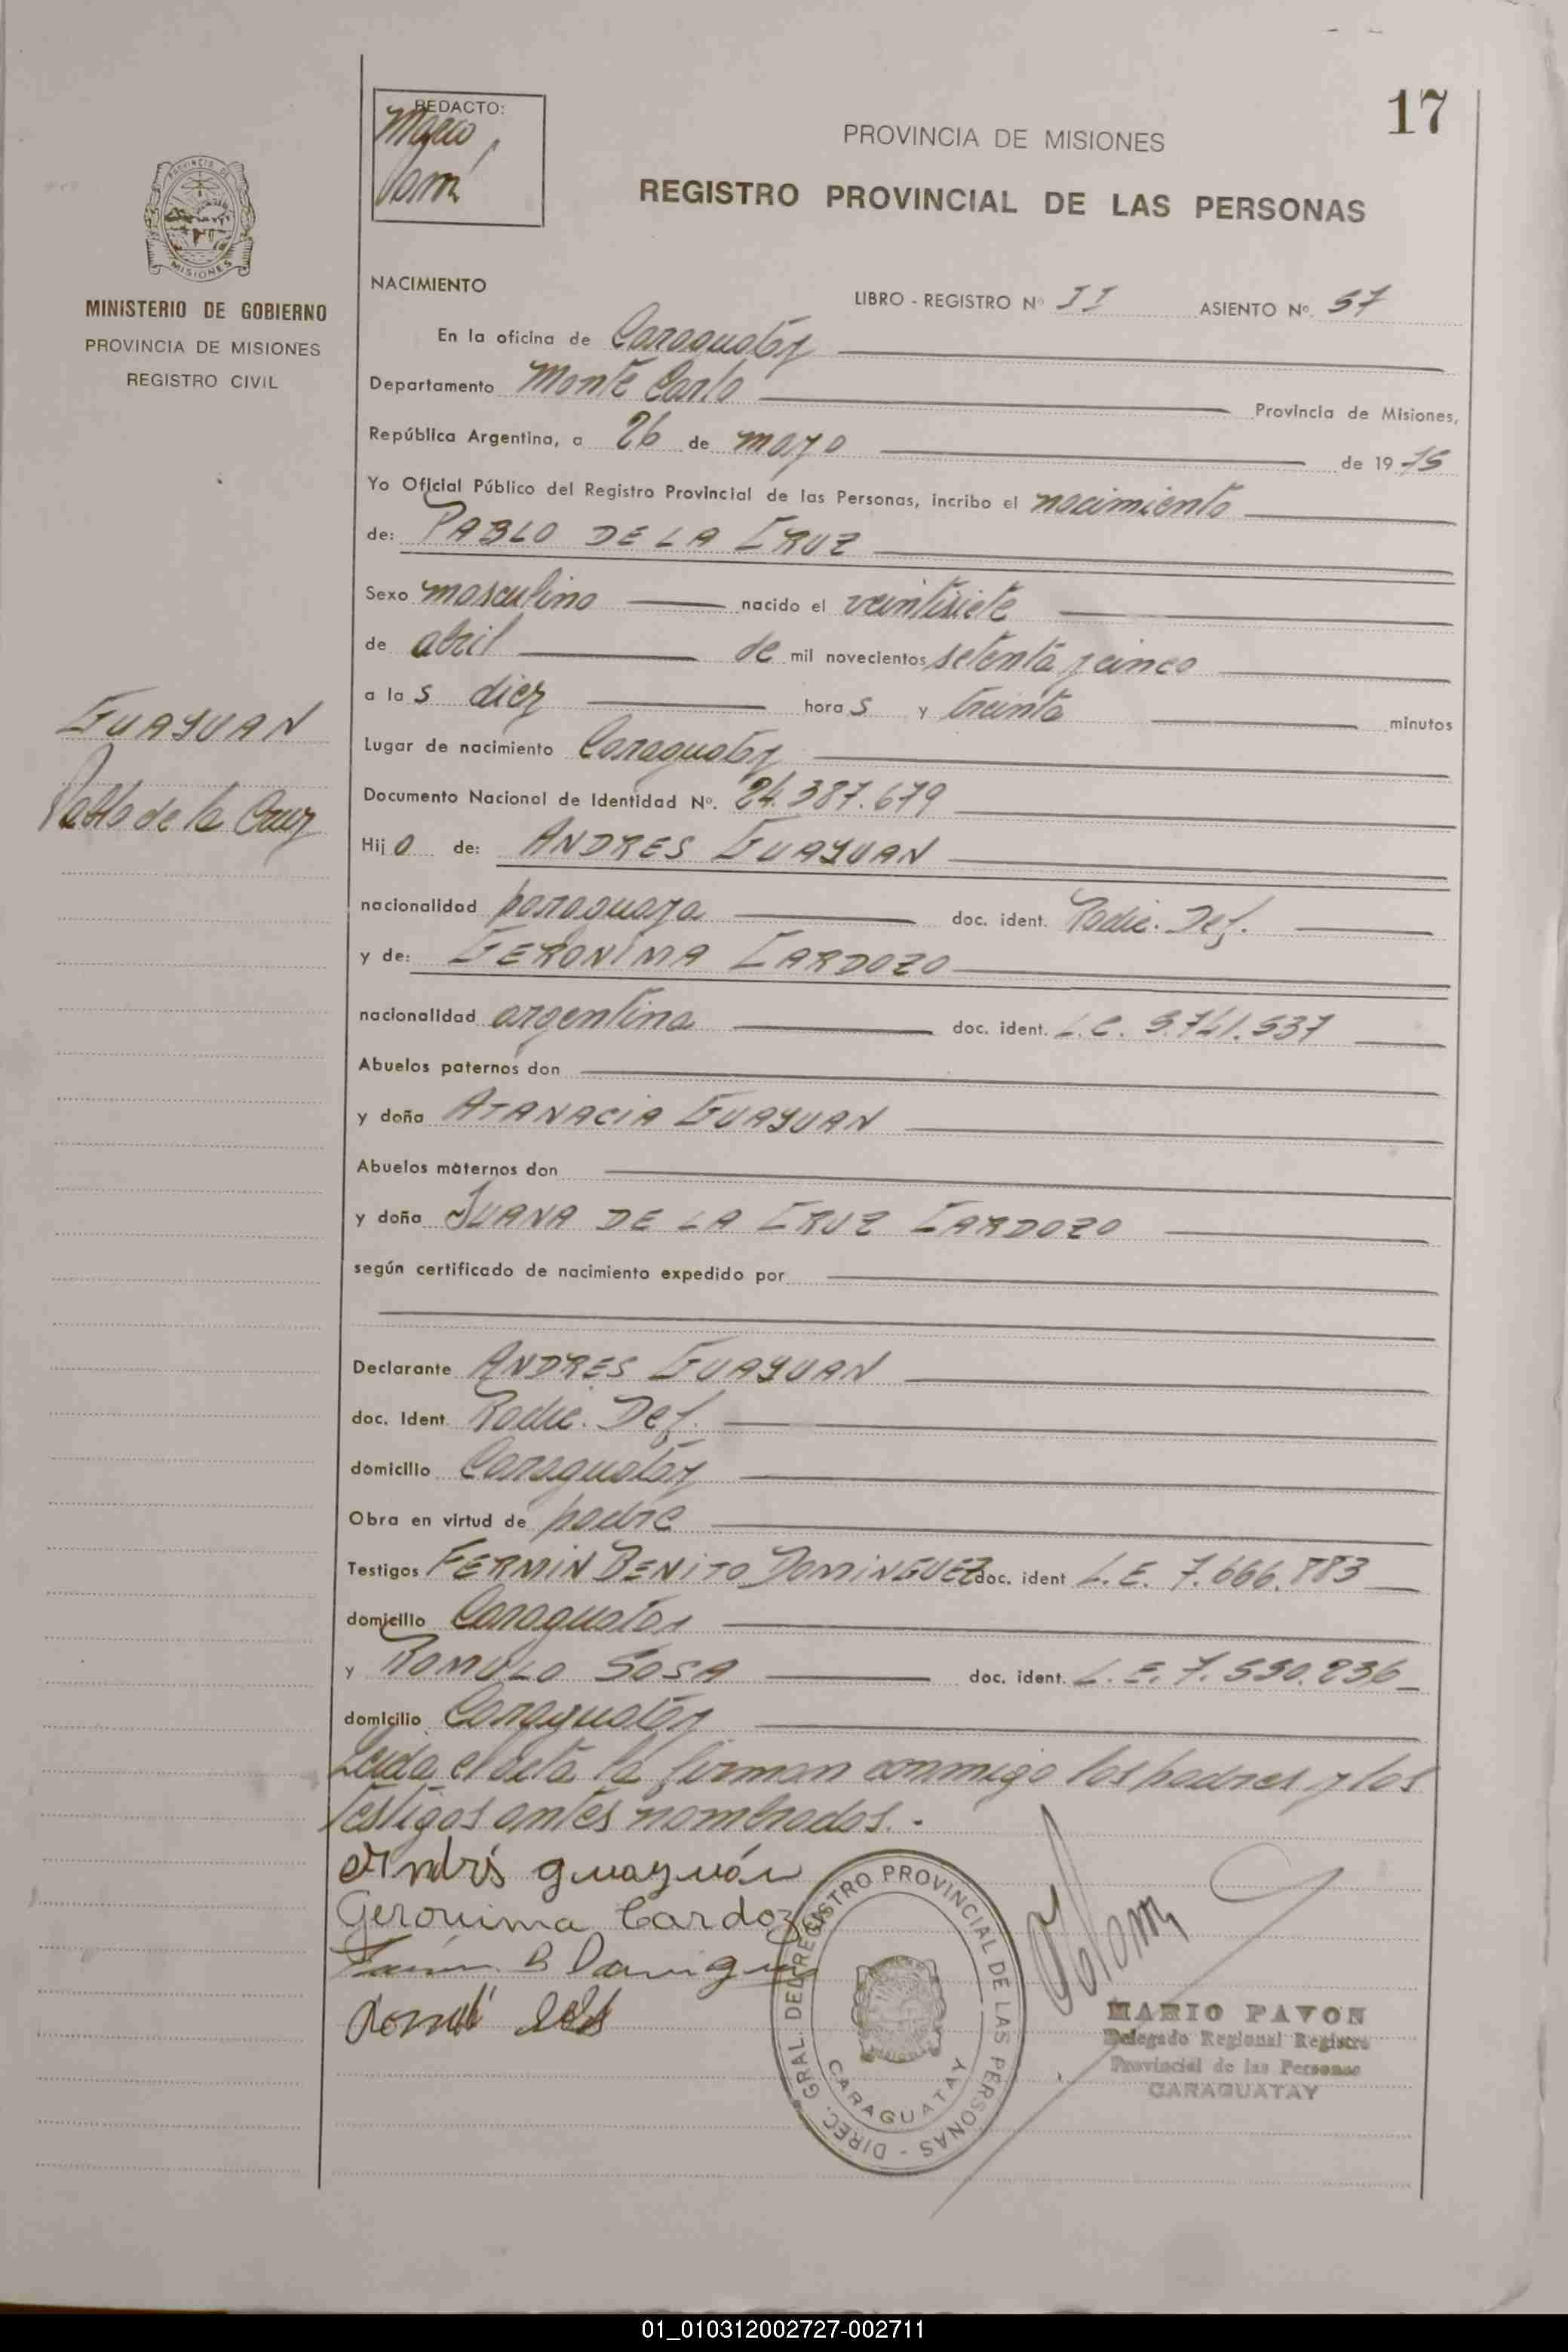 17
REDACTO:
Mario
PROVINCIA DE MISIONES
REGISTRO PROVINCIAL DE LAS PERSONAS
MISIONES
MINISTERIO DE GOBIERNO
PROVINCIA DE MISIONES
REGISTRO CIVIL
NACIMIENTO
LIBRO - REGISTRO Nº II ASIENTO Nº. 57
En la oficina de Caraguatay
Departamento Monte Carlo Provincia de Misiones,
República Argentina, a 26 de mayo de 19 75
Yo Oficial Público del Registro Provincial de las Personas, incribo el nacimiento
de: PABLO DE LA CRUZ
Sexo masculino nacido el veintisiete
de abril de mil novecientos setenta y cinco
a las diez horas y treinta minutos
GUAYUAN
Pablo de la Cruz
Lugar de nacimiento Caraguatay
Documento Nacional de Identidad Nº. 24.387.679
Hijo de: ANDRES GUAYUAN
nacionalidad paraguaya doc. ident. Radic. Def.
y de: GERONIMA CARDOZO
nacionalidad argentina doc. ident. L.C. 5.741.537
Abuelos paternos don
y doña ATANACIA GUAYUAN
Abuelos maternos don
y doña JUANA DE LA CRUZ CARDOZO
según certificado de nacimiento expedido por
Declarante ANDRES GUAYUAN
doc. Ident. Radic. Def.
domicilio Caraguatay
Obra en virtud de padre
Testigos FERMIN BENITO DOMINGUEZ doc. ident L.E. 7.666.883
domicilio Caraguatay
y ROMULO SOSA doc. ident. L.E. 7.530.836
domicilio Caraguatay
Leida el acta la firman conmigo los padres y los
testigos antes nombrados.-
Andrés guayuán
Geronima Cardozo
DIREC. GRAL. DEL REGISTRO PROVINCIAL DE LAS PERSONAS -
CARAGUATAY
MARIO PAVON
Delegado Regional Registro
Provincial de las Personas
CARAGUATAY
01_010312002727-002711